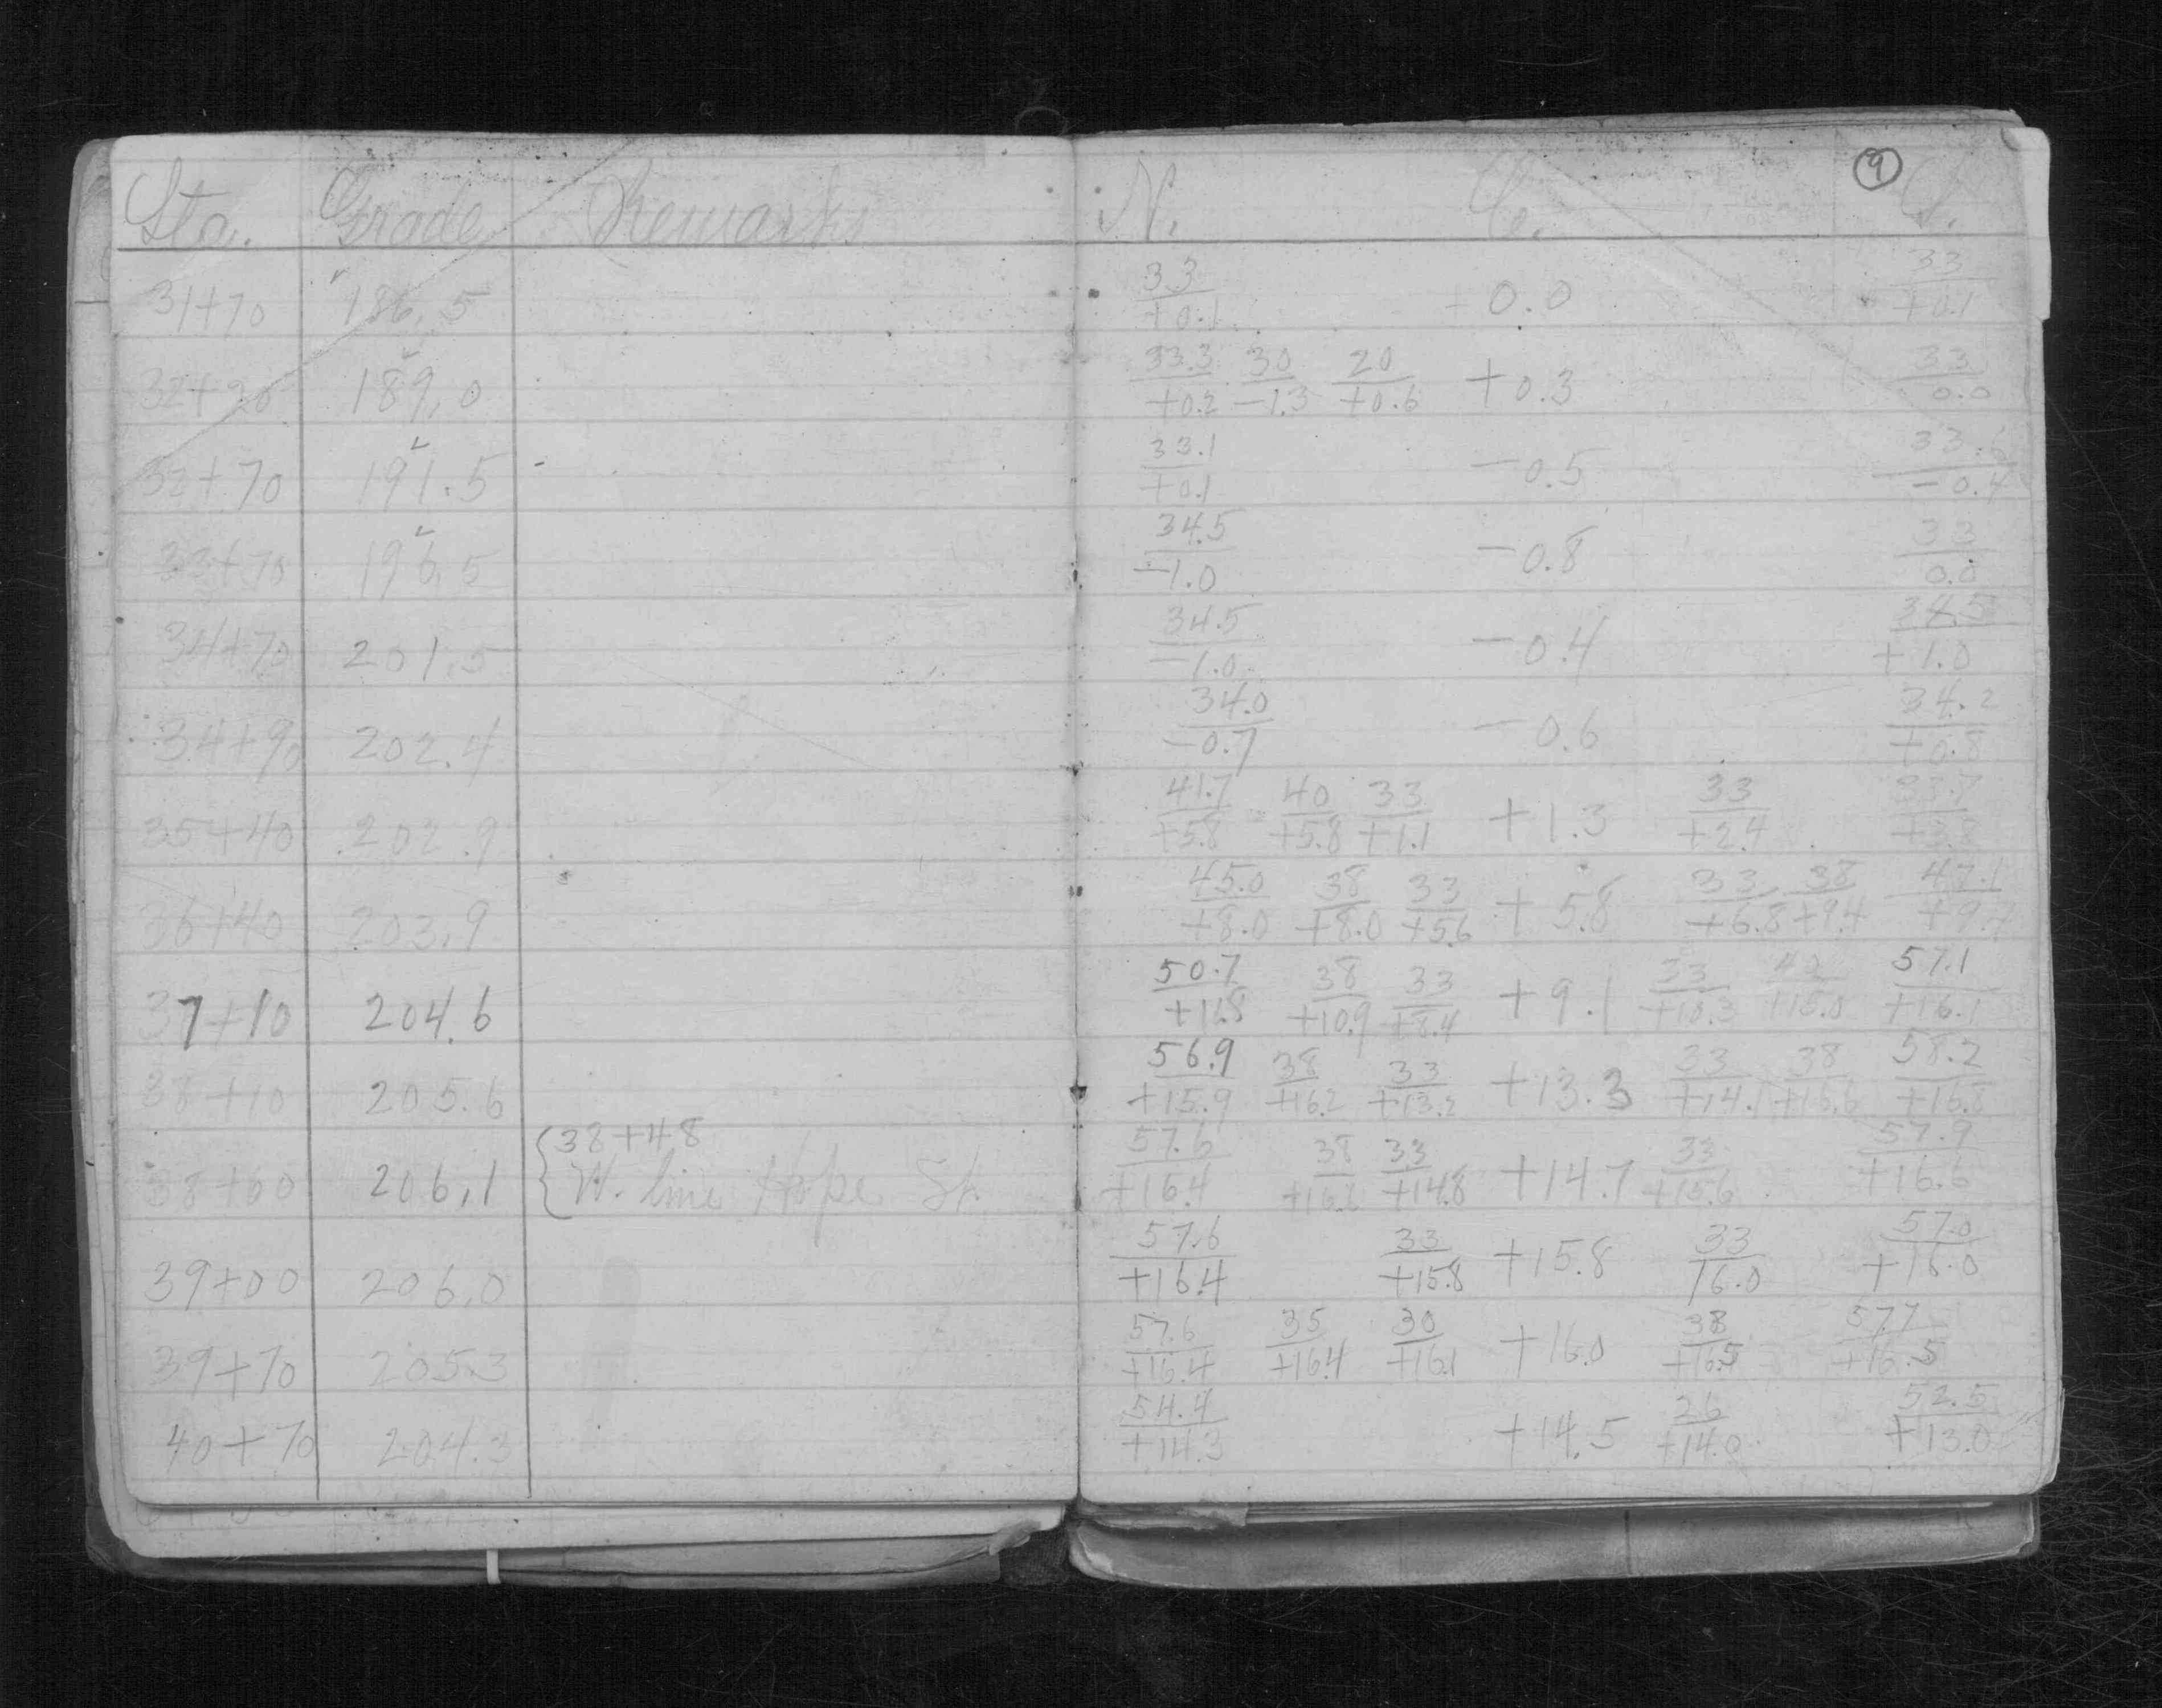 Sta. Grade Remarks N. C. 9 S.
31+70 186.5 33/+0.1 0.0 33/+0.1
32+20 189.0 33.3/+0.2 30/-1.3 20/+0.6 +0.3 33/0.0
32+70 191.5 33.1/+0.1 -0.5 33.6/-0.4
33+70 196.5 34.5/-1.0 -0.8 33/0.0
34+70 201.5 34.5/-1.0 -0.4 34.5/+1.0
34+90 202.4 34.0/-0.7 -0.6 34.2/+0.8
35+40 202.9 41.7/+5.8 40/+5.8 33/+1.1 +1.3 33/+2.4
36+40 203.9 45.0/+8.0 38/+8.0 33/+5.6 +5.8 33/+6.8 38/+9.4 47.1/+9.4
37+10 204.6 50.7/+11.8 38/+10.9 33/+8.4 +9.1 33/+10.3 40/+15.0 57.1/+16.1
38+10 205.6 56.9/+15.9 38/+16.2 33/+13.2 +13.3 33/+14.1 38/+15.6 58.2/+16.8
{38+48
206.1 W. line Hope St. 57.6/+16.4 38/+16.2 33/+14.8 +14.7 33/+15.6 57.9/+16.6
39+00 206.0 57.6/+16.4 33/+15.8 +15.8 33/16.0 57.0/+16.0
39+70 205.3 57.6/+16.4 35/+16.4 30/+16.1 +16.0 38/+16.5 57.7/+16.5
40+70 204.3 54.4/+14.3 +14.5 26/+14.0 52.5/+13.0